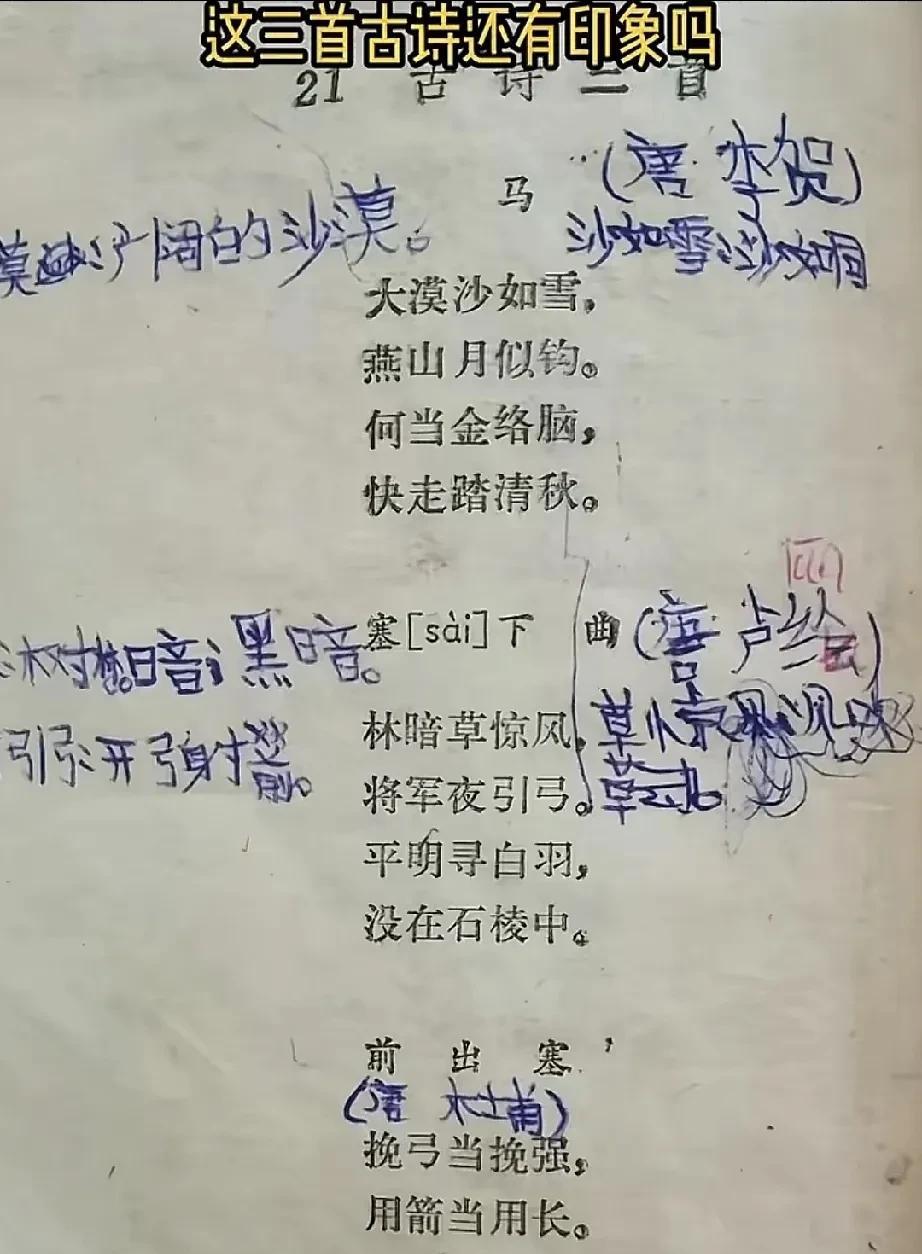 这三首古诗还有印象吗
21 古诗三首
马 (唐 李贺)
漠:广阔的沙漠。
沙如雪:沙如雪
大漠沙如雪,
燕山月似钩。
何当金络脑,
快走踏清秋。
塞[sài]下曲 (唐 卢纶)
林:树林。暗:黑暗。
林暗草惊风,
引:开弓射箭。
将军夜引弓。
平明寻白羽,
没在石棱中。
前出塞
(唐 杜甫)
挽弓当挽强,
用箭当用长。